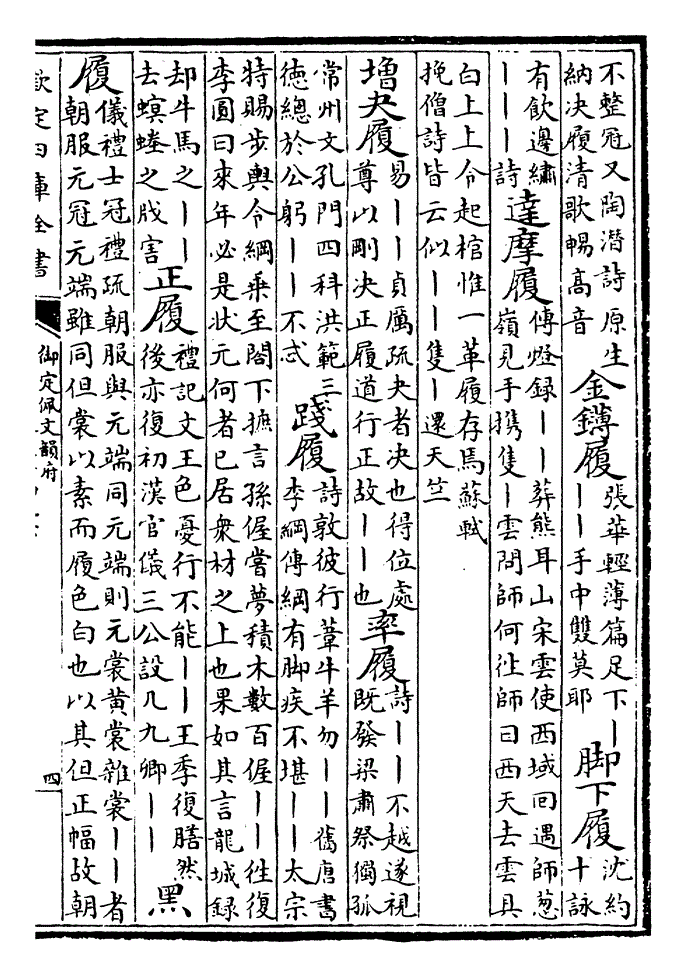 不整冠又陶潛詩原生
納决履清歌暢髙音
金鑮履
張華輕薄篇足下丨
丨丨手中雙莫耶
脚下履
沈約
十詠
有飲邊繡
丨丨丨詩
達摩履
傳燈録丨丨葬熊耳山宋雲使西域回遇師葱
嶺見手携隻丨雲問師何徃師曰西天去雲具
白上上令起棺惟一革履存焉蘇軾
挽僧詩皆云似丨丨隻丨還天竺
增夬履
易丨丨貞厲疏夬者决也得位處
尊以剛决正履道行正故丨丨也
率履
詩丨丨不越遂視
既發梁肅祭獨孤
常州文孔門四科洪範三
徳總於公躬丨丨不忒
踐履
詩敦彼行葦牛羊勿丨丨舊唐書
李綱傳綱有脚疾不堪丨丨太宗
特賜步輿令綱乗至閤下摭言孫偓嘗夢積木數百偓丨丨往復
李圓曰來年必是狀元何者已居衆材之上也果如其言龍城録
却牛馬之丨丨
去螟螣之戕害
正履
禮記文王色憂行不能丨丨王季復膳然
後亦復初漢官儀三公設几九卿丨丨
黑
履
儀禮士冠禮疏朝服與元端同元端則元裳黄裳雜裳丨丨者
朝服元冠元端雖同但裳以素而履色白也以其但正幅故朝
欽定四庫全書
御定佩文韻府
四